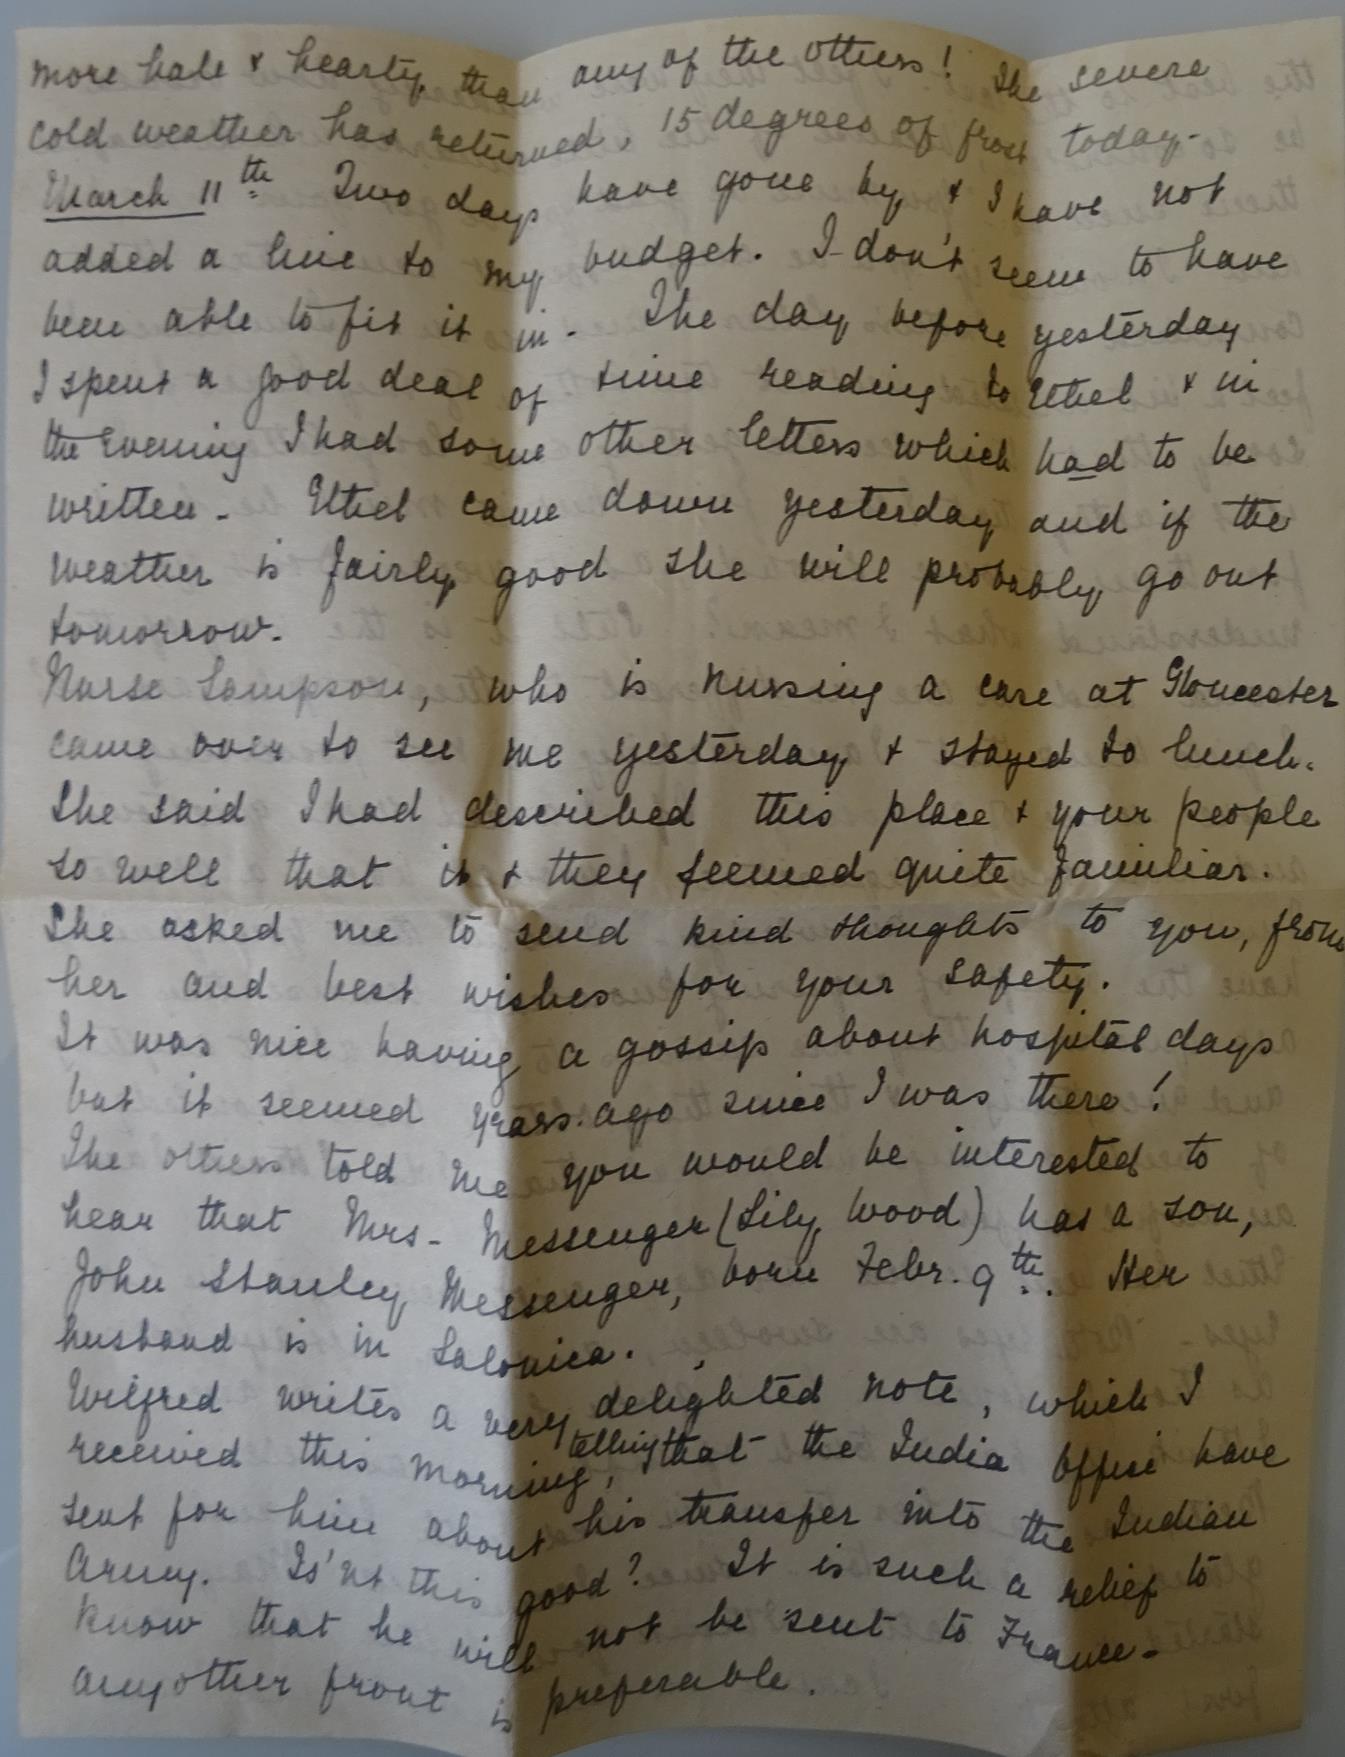 more hale & hearty than any of the others! The severe
cold weather has returned, 15 degrees of frost today.
March 11th Two days have gone by & I have not
added a line to my budget. I don't seem to have
been able to fit it in. The day before yesterday
I spent a good deal of time reading to Ethel & in
the Evening I had some other letters which had to be
written. Ethel came down yesterday and if the
weather is fairly good she will probably go out
tomorrow.
Nurse Sampson, who is nursing a case at Gloucester
came over to see me yesterday & stayed to lunch.
She said I had described this place & your people
so well that it & they seemed quite familiar.
She asked me to send kind thoughts to you, from
her and best wishes for your safety.
It was nice having a gossip about hospital days
but it seemed years ago since I was there!
The others told me you would be interested to
hear that Mrs. Messenger (Lily Wood) has a son,
John Stanley Messenger, born Febr. 9th. Her
husband is in Salonica.
Wilfred writes a very delighted note, which I
received this morning, telling that the India Office have
sent for him about his transfer into the Indian
Army. Is'nt this good? It is such a relief to
know that he will not be sent to France.
Any other front is preferable.